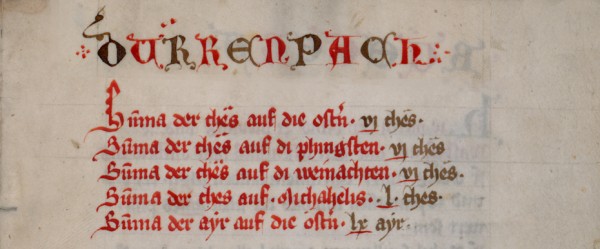 DÜRRENPACH
Sūma der ches̄ auf die ostn̄. vj ches̄.
Sūma der ches̄ auf di phingsten. vj ches̄
Sūma der ches̄ auf di weinachten. vj ches̄.
Sūma der ches auf Michahelis. l. ches.
Sūma der ayr auf die ostn̄. lx ayr.